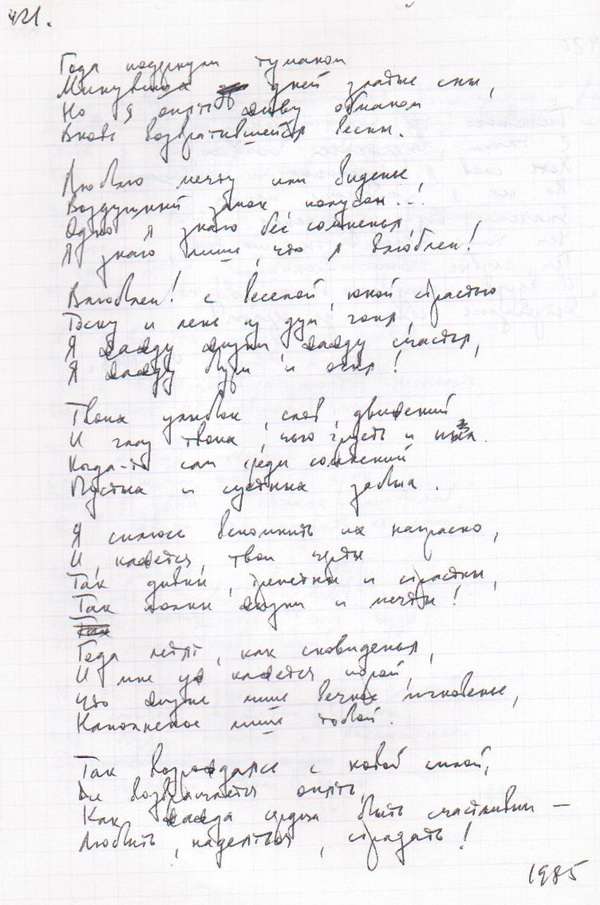 421.
Года подернули туманом
Минувших дней златые сны,
Но я опять живу обманом
Вновь возвратившейся весны.
Люблю мечту или виденье,
Воздушный замок полусон...!
Одно я знаю без сомненья,
Я знаю лишь, что я влюблен!
Влюблен! с веселой юной страстью
Тоску и лень из души гоня,
Я жажду жизни жажду счастья,
Я жажду бури и огня!
Твоих улыбок, слов, движений
И глаз твоих, чью грусть и
Когда-то сам среди сомнений
Пустых и суетных забыл.
Я силюсь вспомнить их напрасно,
И, кажется, твои черты
Так дивны, трепетны и страстны,
Так полны жизни и мечты!
Так
Года летят, как сновиденья,
И мне уж кажется порой,
Что жизнь лишь вечное мгновенье,
Наполненное лишь тобой.
Так возрождаясь с новой силой,
Всё возвращается опять,
Как жажда сердца быть счастливым —
Любить, надеяться, страдать!
1985